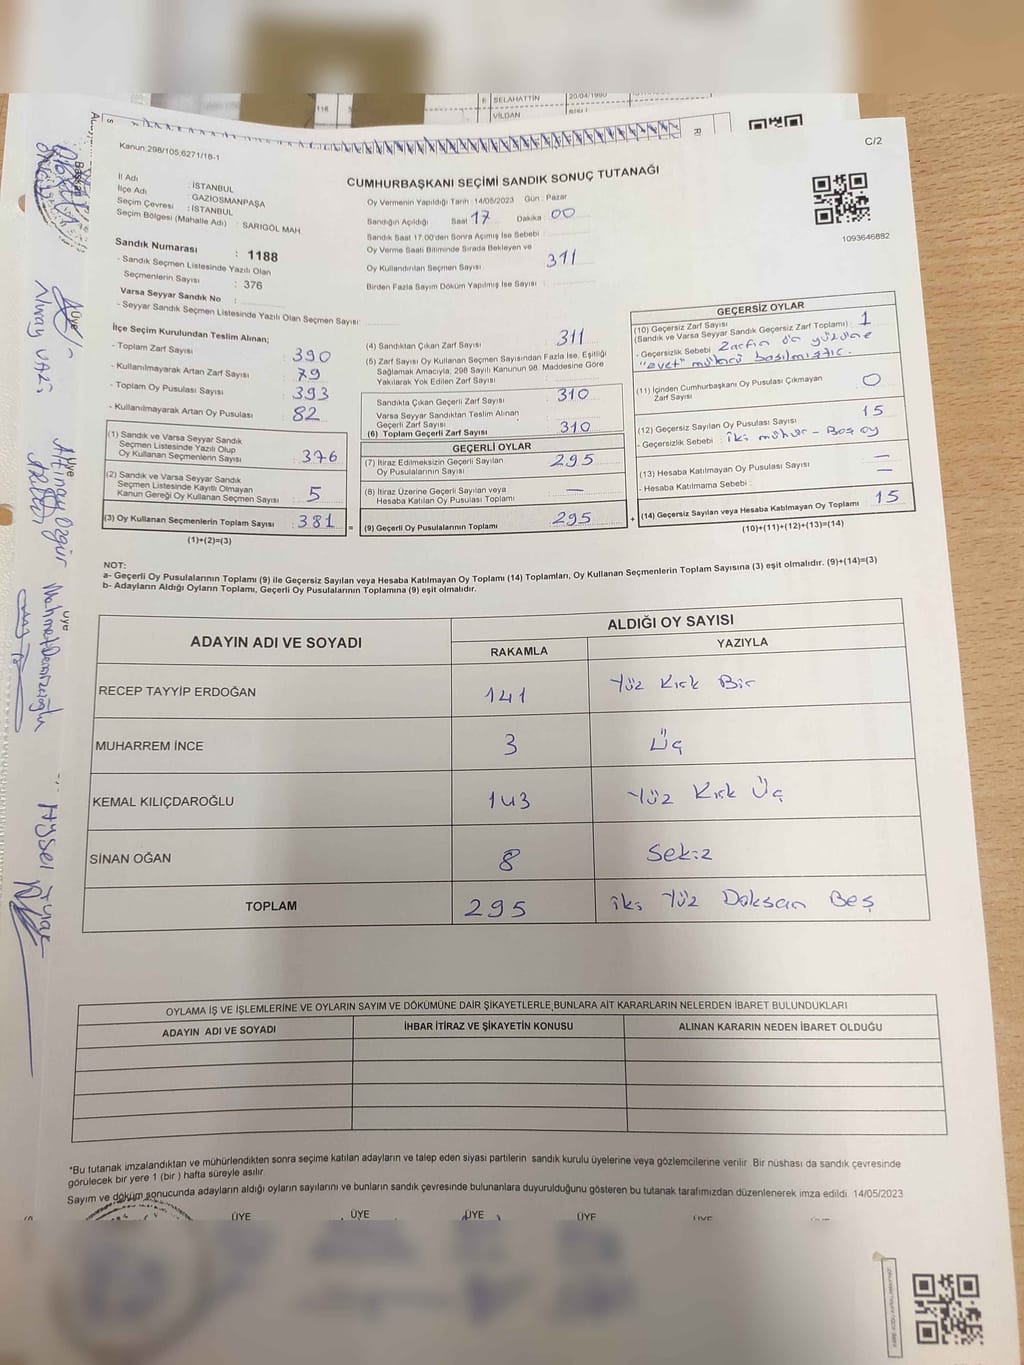 E SELAHATTİN 20/04/1980
116
VİLDAN
Kanun:298/105;6271/18-1
C/2
CUMHURBAŞKANI SEÇİMİ SANDIK SONUÇ TUTANAĞI
1093646882
İl Adı : İSTANBUL
İlçe Adı : GAZİOSMANPAŞA
Seçim Çevresi : İSTANBUL
Seçim Bölgesi (Mahalle Adı) : SARIGÖL MAH.
Sandık Numarası : 1188
- Sandık Seçmen Listesinde Yazılı Olan
Seçmenlerin Sayısı : 376
Varsa Seyyar Sandık No :
- Seyyar Sandık Seçmen Listesinde Yazılı Olan Seçmen Sayısı:
Oy Vermenin Yapıldığı Tarih : 14/05/2023 Gün : Pazar
Sandığın Açıldığı Saat 17 Dakika : 00
Sandık Saat 17.00'den Sonra Açımış İse Sebebi :
Oy Verme Saati Bitiminde Sırada Bekleyen ve
Oy Kullandırılan Seçmen Sayısı : 311
Birden Fazla Sayım Döküm Yapılmış İse Sayısı :
İlçe Seçim Kurulundan Teslim Alınan;
- Toplam Zarf Sayısı : 390
- Kullanılmayarak Artan Zarf Sayısı : 79
- Toplam Oy Pusulası Sayısı : 393
- Kullanılmayarak Artan Oy Pusulası : 82
(1) Sandık ve Varsa Seyyar Sandık
Seçmen Listesinde Yazılı Olup
Oy Kullanan Seçmenlerin Sayısı : 376
(2) Sandık ve Varsa Seyyar Sandık
Seçmen Listesinde Kayıtlı Olmayan
Kanun Gereği Oy Kullanan Seçmen Sayısı : 5
(3) Oy Kullanan Seçmenlerin Toplam Sayısı : 381 =
(1)+(2)=(3)
(4) Sandıktan Çıkan Zarf Sayısı : 311
(5) Zarf Sayısı Oy Kullanan Seçmen Sayısından Fazla İse, Eşitliği
Sağlamak Amacıyla; 298 Sayılı Kanunun 98. Maddesine Göre
Yakılarak Yok Edilen Zarf Sayısı :
Sandıkta Çıkan Geçerli Zarf Sayısı : 310
Varsa Seyyar Sandıktan Teslim Alınan
Geçerli Zarf Sayısı :
(6) Toplam Geçerli Zarf Sayısı : 310
GEÇERLİ OYLAR
(7) İtiraz Edilmeksizin Geçerli Sayılan
Oy Pusulalarının Sayısı : 295
(8) İtiraz Üzerine Geçerli Sayılan veya
Hesaba Katılan Oy Pusulası Toplamı : —
(9) Geçerli Oy Pusulalarının Toplamı : 295 +
GEÇERSİZ OYLAR
(10) Geçersiz Zarf Sayısı
(Sandık ve Varsa Seyyar Sandık Geçersiz Zarf Toplamı) : 1
- Geçersizlik Sebebi : Zarfın ön yüzüne
"evet" mührü basılmıştır.
(11) İçinden Cumhurbaşkanı Oy Pusulası Çıkmayan
Zarf Sayısı : 0
(12) Geçersiz Sayılan Oy Pusulası Sayısı : 15
- Geçersizlik Sebebi : iki mühür - Boş oy
(13) Hesaba Katılmayan Oy Pusulası Sayısı : —
- Hesaba Katılmama Sebebi : —
(14) Geçersiz Sayılan veya Hesaba Katılmayan Oy Toplamı : 15
(10)+(11)+(12)+(13)=(14)
NOT:
a- Geçerli Oy Pusulalarının Toplamı (9) ile Geçersiz Sayılan veya Hesaba Katılmayan Oy Toplamı (14) Toplamları, Oy Kullanan Seçmenlerin Toplam Sayısına (3) eşit olmalıdır. (9)+(14)=(3)
b- Adayların Aldığı Oyların Toplamı, Geçerli Oy Pusulalarının Toplamına (9) eşit olmalıdır.
ADAYIN ADI VE SOYADI ALDIĞI OY SAYISI
RAKAMLA YAZIYLA
RECEP TAYYİP ERDOĞAN 141 Yüz Kırk Bir
MUHARREM İNCE 3 Üç
KEMAL KILIÇDAROĞLU 143 Yüz Kırk Üç
SİNAN OĞAN 8 Sekiz
TOPLAM 295 iki Yüz Doksan Beş
OYLAMA İŞ VE İŞLEMLERİNE VE OYLARIN SAYIM VE DÖKÜMÜNE DAİR ŞİKAYETLERLE, BUNLARA AİT KARARLARIN NELERDEN İBARET BULUNDUKLARI
ADAYIN ADI VE SOYADI İHBAR İTİRAZ VE ŞİKAYETİN KONUSU ALINAN KARARIN NEDEN İBARET OLDUĞU
*Bu tutanak imzalandıktan ve mühürlendikten sonra seçime katılan adayların ve talep eden siyasi partilerin sandık kurulu üyelerine veya gözlemcilerine verilir. Bir nüshası da sandık çevresinde
görülecek bir yere 1 (bir) hafta süreyle asılır.
Sayım ve döküm sonucunda adayların aldığı oyların sayılarını ve bunların sandık çevresinde bulunanlara duyurulduğunu gösteren bu tutanak tarafımızdan düzenlenerek imza edildi. 14/05/2023
ÜYE ÜYE ÜYE ÜYE ÜYE ÜYE
Başkan
Üye
Üye
Özgür
Üye
Mahmut
Aysel